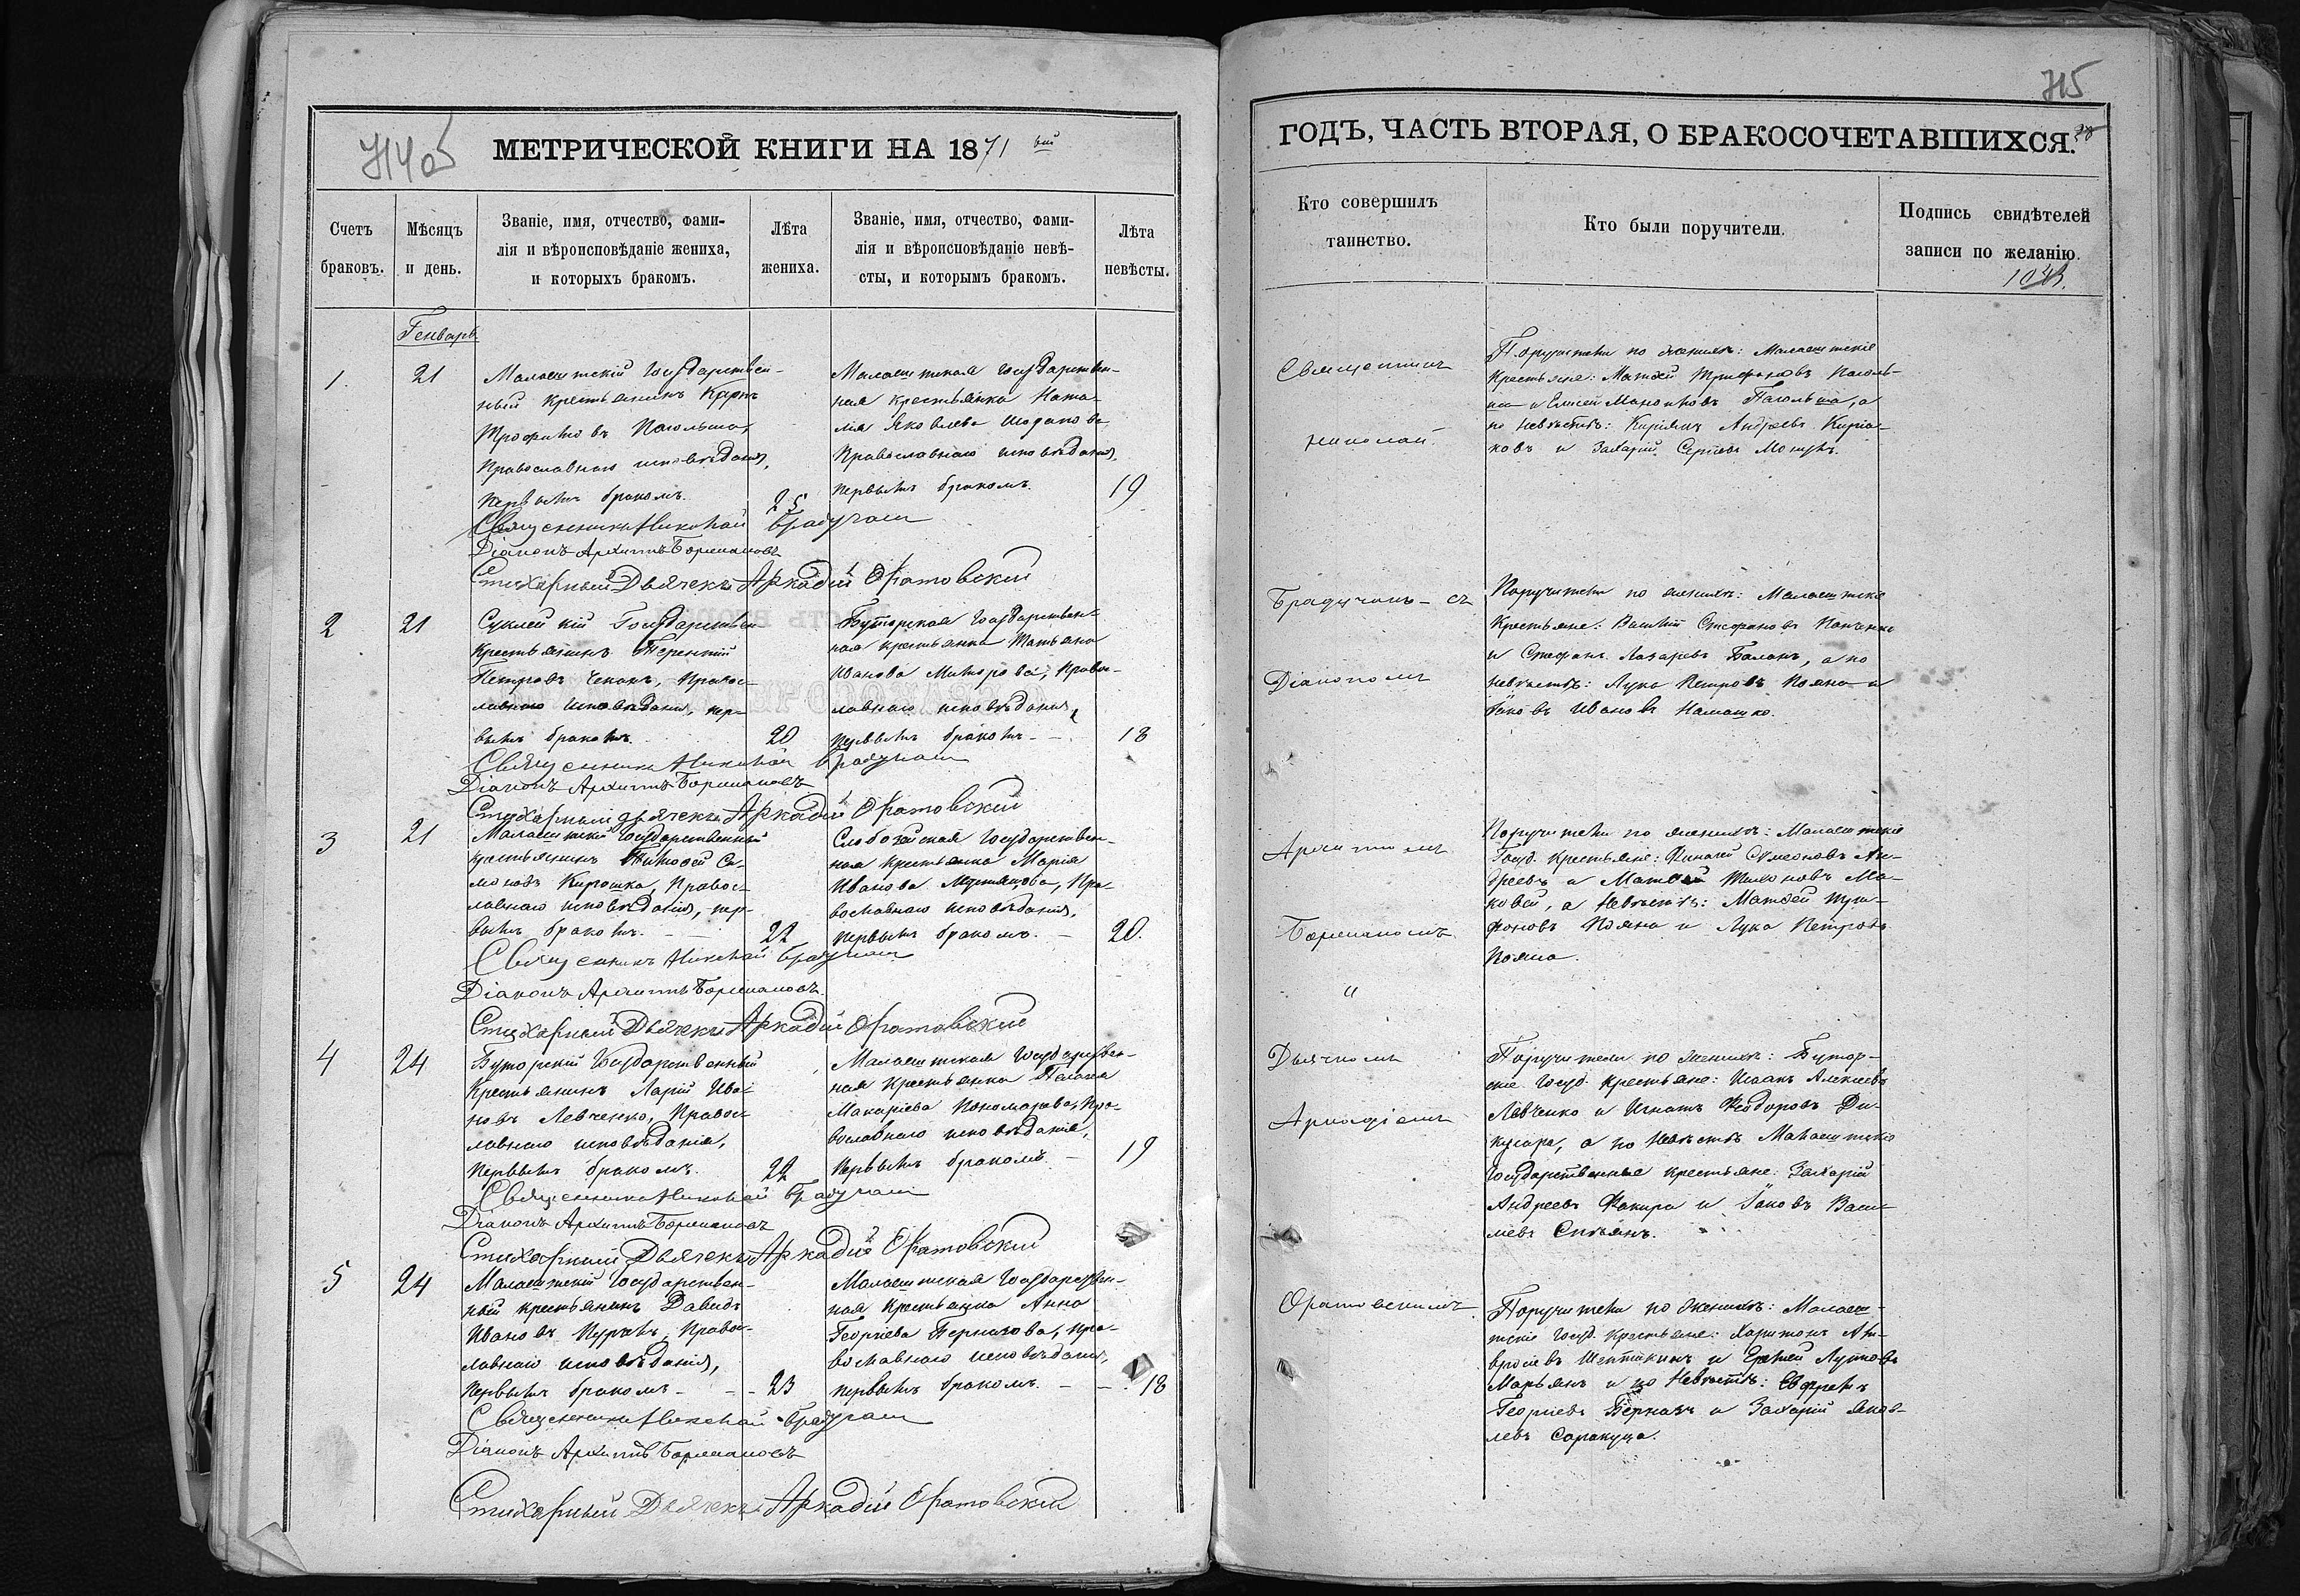 МЕТРИЧЕСКОЙ КНИГИ НА 1871 вый
Счетъ браковъ.
Мѣсяцъ и день.
Званіе, имя, отчество, фами-
лія и вѣроисповѣданіе жениха,
и которыхъ бракомъ.
Лѣта жениха.
Званіе, имя, отчество, фами-
лія и вѣроисповѣданіе невѣ-
сты, и которымъ бракомъ.
Лѣта невѣсты.
Генварь
1. 21
Малаештскій Государствен-
ный крестьянинъ Карпъ
Трофимовъ Пагольша,
Православнаго исповѣданія,
первымъ бракомъ. 25
Малаештская Государствен-
ная крестьянка Ната-
лія Яковлева
Православнаго исповѣданія,
первымъ бракомъ. 19
Священникъ Николай Брадучанъ
Діаконъ Архиппъ Боршановъ
Стихарный Дьячекъ Аркадій Оратовскій
2 21
Суклейскій Государствен
крестьянинъ Терентій
Петровъ Чеканъ, Правос-
лавнаго исповѣданія, пер-
вымъ бракомъ. 20
Буторская Государствен-
ная крестьянка Татьяна
Иванова Православ-
лавнаго исповѣданія,
первымъ бракомъ 18
Священникъ Николай Брадучанъ
Діаконъ Архиппъ Боршановъ
Стихарный дьячекъ Аркадій Оратовскій
3 21
Малаештскій Государственный
крестьянинъ Тимофей Си-
моновъ Кирошка, Правос-
лавнаго исповѣданія, пер-
вымъ бракомъ. 22
Слободзейская Государствен-
ная крестьянка Марія
Иванова Пра-
вославнаго исповѣданія,
первымъ бракомъ. 20.
Священникъ Николай Брадучанъ
Діаконъ Архиппъ Боршановъ
Стихарный Дьячекъ Аркадій Оратовскій
4 24
Буторскій Государственный
Крестьянинъ Ларій Ива-
новъ Левченко, Правос-
лавнаго исповѣданія,
первымъ бракомъ. 22
Малаештская Государствен-
ная крестьянка Пелагея
Макаріева Пономарова, Пра-
вославнаго исповѣданія,
первымъ бракомъ 19
Священникъ Николай Брадучанъ
Діаконъ Архиппъ Боршановъ
Стихарный Дьячекъ Аркадій Оратовскій
5 24
Малаештскій Государствен-
ный крестьянинъ Давидъ
Ивановъ Правос-
лавнаго исповѣданія,
первымъ бракомъ 23
Малаештская Государствен-
ная Крестьянка Анна
Георгіева Пра-
вославнаго исповѣданія,
первымъ бракомъ. 18
Священникъ Николай Брадучанъ
Діаконъ Архиппъ Боршановъ
Стихарный Дьячекъ Аркадій Оратовскій
715
ГОДЪ, ЧАСТЬ ВТОРАЯ, О БРАКОСОЧЕТАВШИХСЯ.
Кто совершилъ таинство.
Кто были поручители.
Подпись свидѣтелей
записи по желанію.
Священникъ
Николай
Брадучанъ - съ
Діакономъ
Архиппомъ
Боршаномъ
и
Дьячкомъ
Аркадіемъ
Оратовскимъ
Поручители по женихѣ: Малаештскіе
Крестьяне: Матѳей Трифановъ Паголь-
ша и Елисей Пагольша, а
по невѣстѣ: Киріякъ Андреевъ Кирія-
ковъ и Захарій Сергѣевъ
Поручители по женихѣ: Малаештскіе
Крестьяне: Василій Стефановъ
и Стефанъ Лазаревъ Баланъ, а по
невѣстѣ: Лука Петровъ Пояна и
Іаковъ Ивановъ
Поручители по женихѣ: Малаештскіе
Госуд. крестьяне: Симеоновъ Ан-
дреевъ и Матѳей Тихоновъ Ма-
ковей, а невѣстѣ: Матѳей Три-
фоновъ Пояна и Лука Петровъ
Пояна.
Поручители по женихѣ: Бутор-
скіе Госуд. крестьяне: Исаакъ Алексіевъ
Левченко и Игнатъ Ѳеодоровъ Ди-
кусара, а по невѣстѣ Малаештскіе
Государственные крестьяне: Захарій
Андреевъ Факира и Іаковъ Васи-
левъ
Поручители по женихѣ: Малаешт-
скіе Госуд. крестьяне: Харитонъ Ам-
вросіевъ и
Марьянъ и по невѣстѣ:
Георгіевъ и Захарій Яков-
левъ Саракуца.